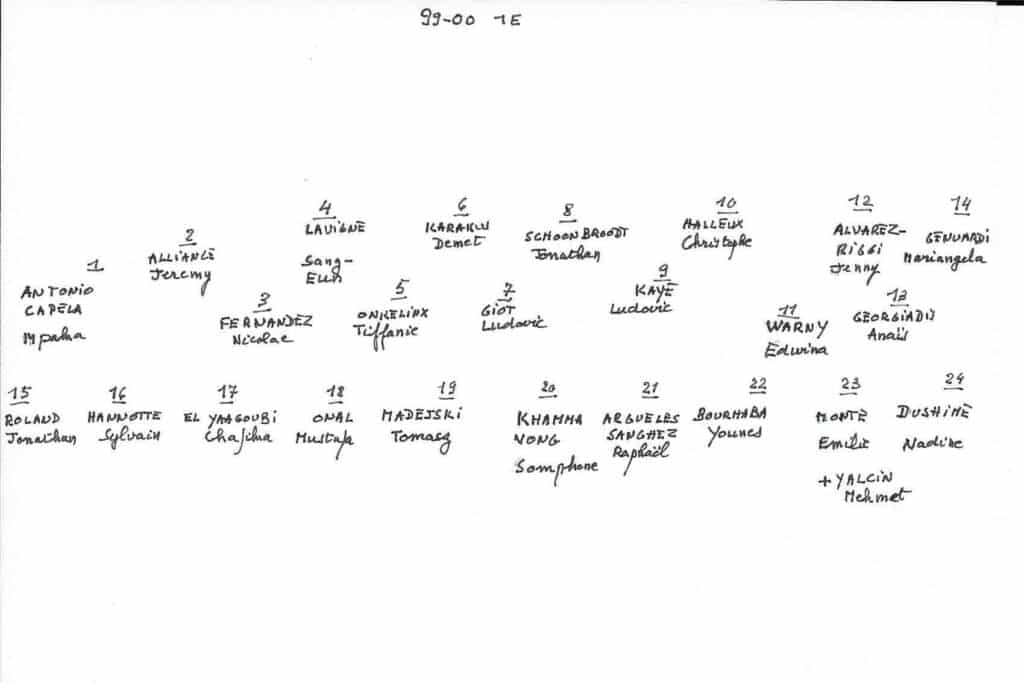 99-00 1E
1
ANTONIO
CAPELA
Mpaka
2
ALLIANCE
Jeremy
3
FERNANDEZ
Nicolae
4
LAVIGNE
Sang-
Eun
5
ONKELINX
Tiffanie
6
KARAKUJ
Demet
7
GIOT
Ludovic
8
SCHOONBROODT
Jonathan
9
KAYE
Ludovic
10
HALLEUX
Christophe
11
WARNY
Edwina
12
ALVAREZ-
RIGGI
Jenny
13
GEORGIADIJ
Anaïs
14
GENUARDI
Mariangela
15
ROLAND
Jonathan
16
HANNOTTE
Sylvain
17
EL YAAGOUBI
18
ONAL
Mustafa
19
MADEJSKI
Tomasz
20
KHAMMA
VONG
Somphone
21
ARGUELES
SANCHEZ
Raphaël
22
BOURHABA
Younes
23
MONTE
Emilie
+ YALCIN
Mehmet
24
DUSHIME
Nadine